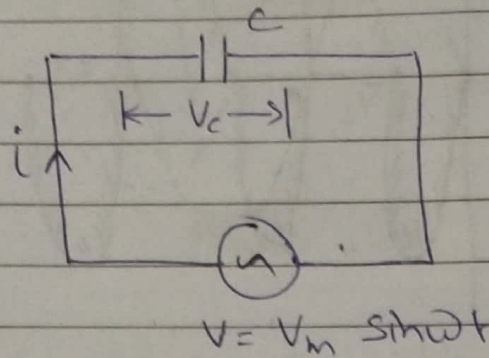 C
← Vc →
i
V = Vm sinωt